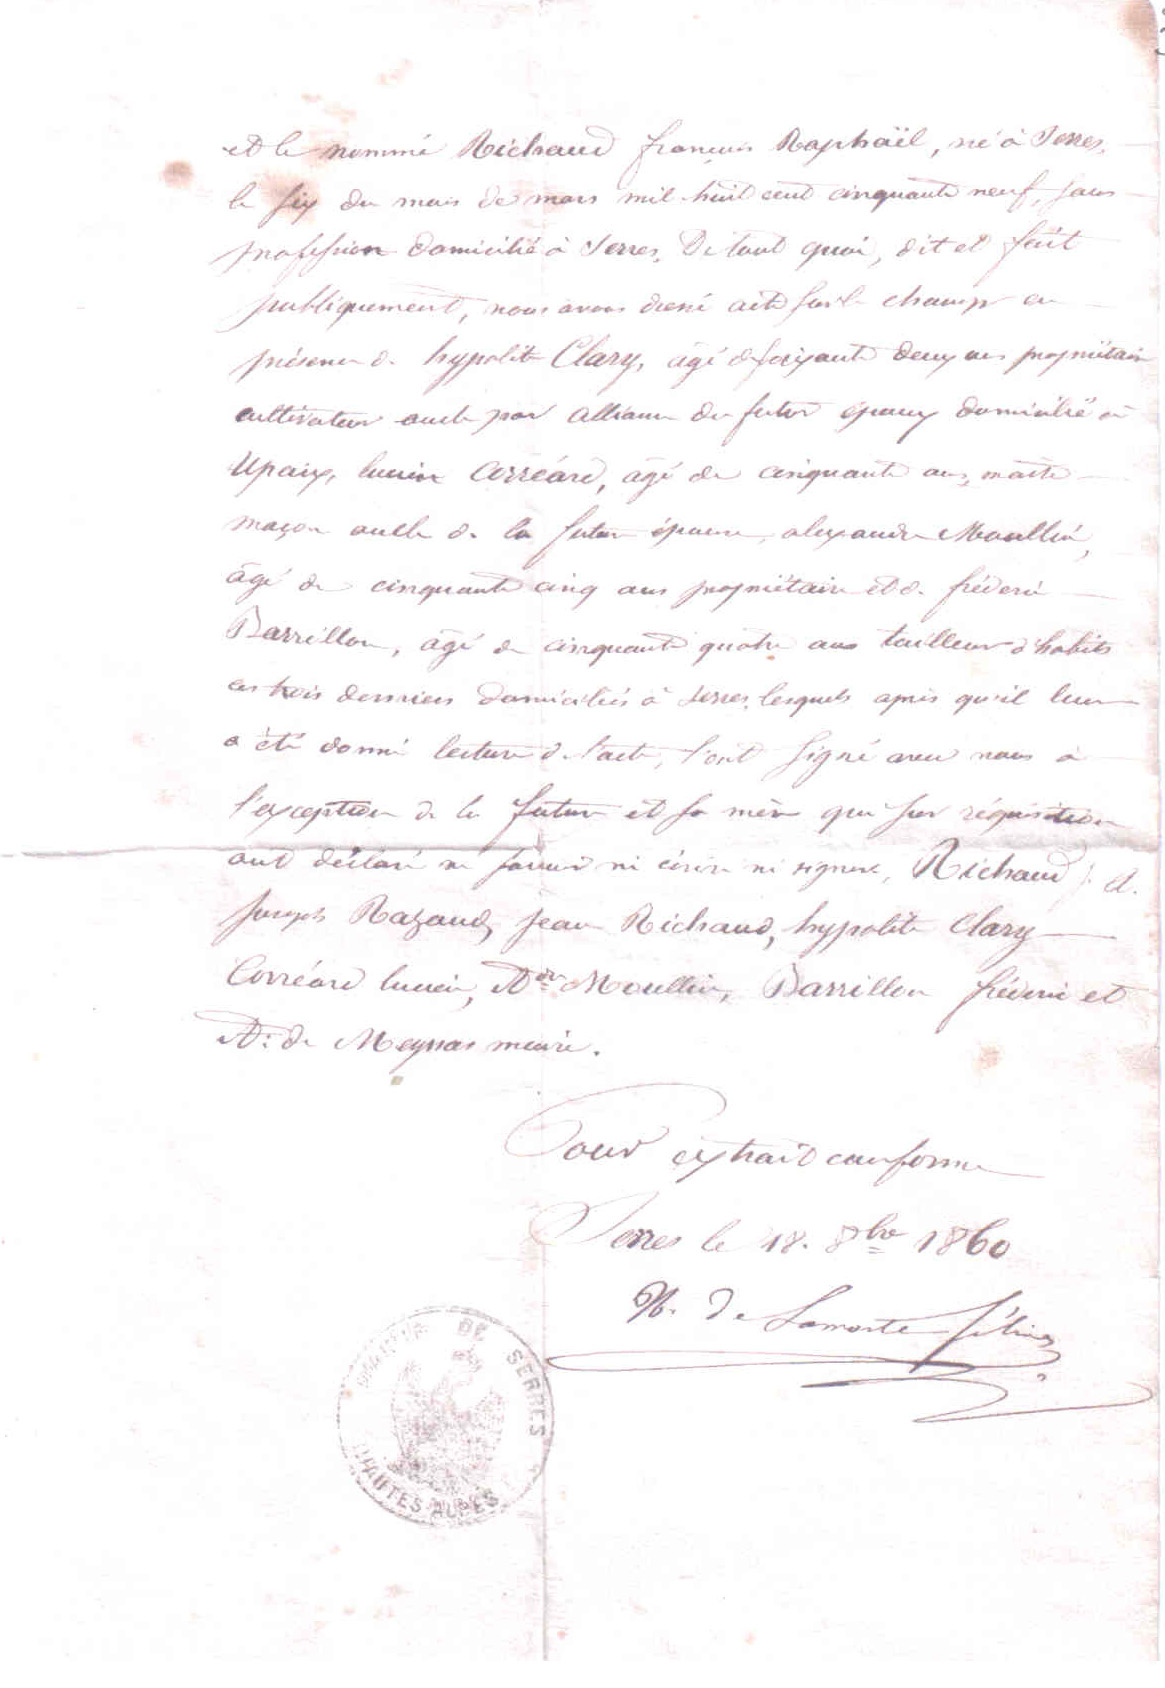 et le nommé Richaud françois Raphaël, né à Serres,
le six du mois de mars mil huit cent cinquante neuf, sans
profession domicilié à Serres, De tout quoi, dit et fait
publiquement, nous avons dressé acte sur le champ en
présence de hypolite Clary, âgé de soixante deux ans propriétaire
cultivateur oncle par alliance du futur époux domicilié à
Upaix, lucien Corréard, âgé de cinquante ans, maître
maçon oncle de la future épouse, alexandre Moullin,
âgé de cinquante cinq ans propriétaire et de fréderic
Barrillon, âgé de cinquante quatre ans tailleur d'habits
ces trois derniers domiciliés à Serres, lesquels après qu'il leur
a été donné lecture de l'acte, l'ont signé avec nous à
l'exception de la future et sa mère qui sur réquisition
ont déclaré ne savoir ni écrire ni signer, Richaud j. A.
Joseph Razaud, Jean Richaud, hypolite Clary
Corréard lucien, Adre Moullin, Barrillon fréderic et
A: de Meyssas maire.
Pour extrait conforme
Serres le 18. 8bre 1860
de Lamorte
MAIRIE DE SERRES
HAUTES ALPES